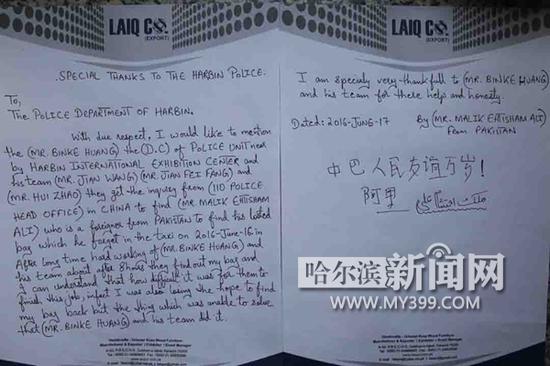 LAIQ CO.
(EXPORT)
SPECIAL THANKS TO THE HARBIN POLICE.
To,
The POLICE DEPARTMENT OF HARBIN.
With due respect, I would like to mention
the (MR. BINKE HUANG) the (D.C) of POLICE UNIT near
by HARBIN INTERNATIONAL EXHIBITION CENTER and
his team (MR. JIAN WANG) (MR. JIAN FEI FANG) and
(MR. HUI ZHAO) they get the inquiry from (110 POLICE
HEAD OFFICE) in CHINA to find (MR. MALIK EHTISHAM
ALI) who is a foreigner from PAKISTAN to find his losted
bag which he forget in the taxi on 2016-June-16 in
After long time hard working of (MR. BINKE HUANG) and
his team about after 8 hours they find out my bag and
I can understand that how difficult it was for them to
finish this job, infact I was also losing the hope to find
my bag back but the thing which was unable to solve
that (MR. BINKE HUANG) and his team did it.
LAIQ CO.
(EXPORT)
I am specialy very thankfull to (MR. BINKE HUANG)
and his team for there help and honesty.
Dated: 2016-JUNE-17
By (MR. MALIK EHTISHAM ALI)
From PAKISTAN
中巴人民友谊万岁！
阿里
哈尔滨新闻网
WWW.MY399.COM